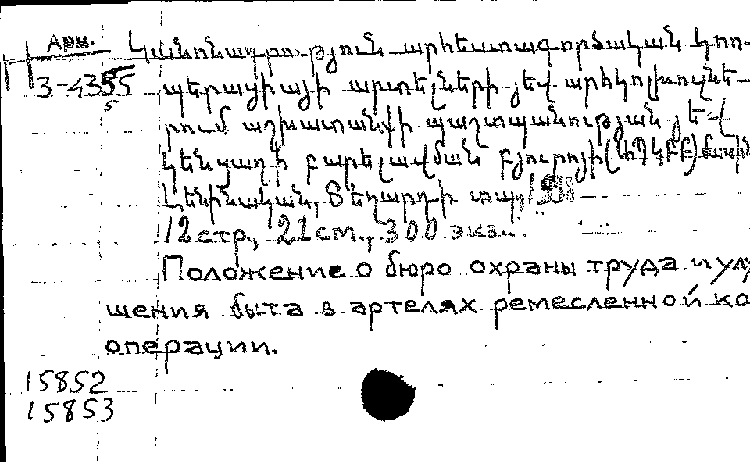 Арм. Կանոնադրություն արհեստագործական կոո-
պերացիայի արտելների յեվ արհկոլխոզնե-
րում աշխատանքի պաշտպանության յեվ
կենցաղի բարելավման բյուրոյի
Լենինական, Տեղարդի տպ.,
12 стр., 21 см., 300 экз.
Положение о бюро охраны труда и улу
шения быта в артелях ремесленной ко
операции.
15852
15853